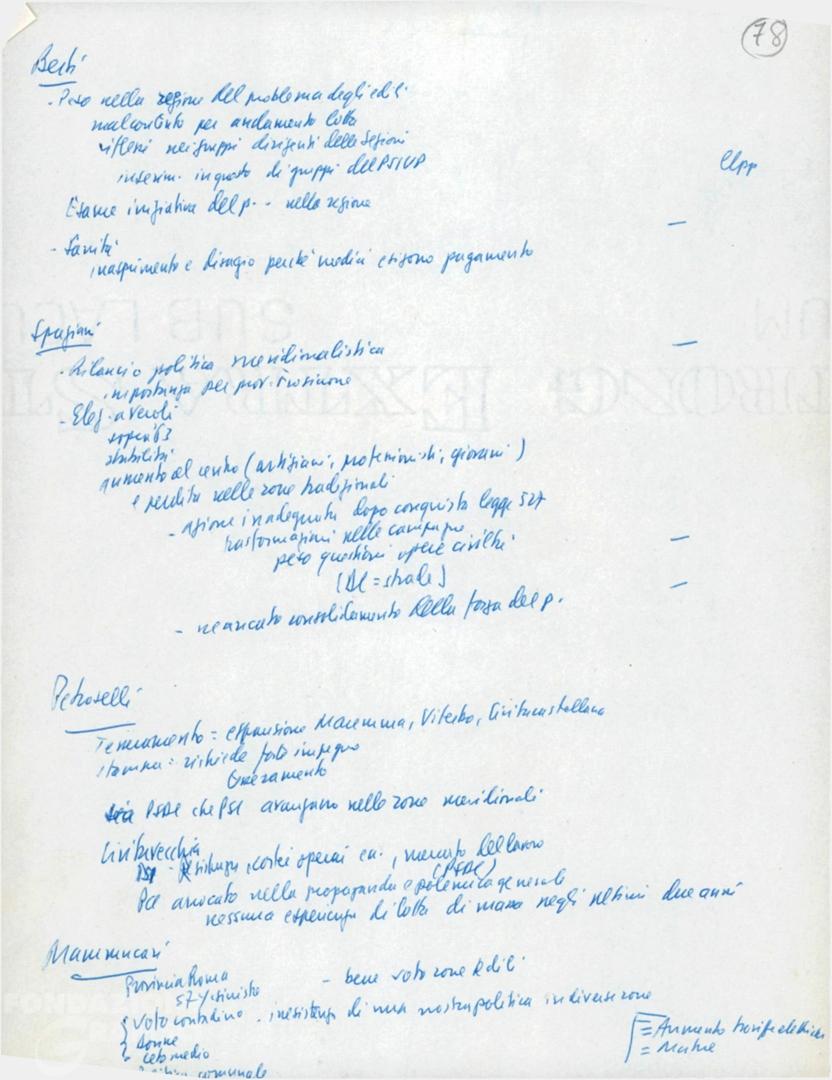 78
Berti
- Peso nella regione del problema degli edili
malcontento per andamento lotta
riflessi nei gruppi dirigenti delle sezioni
inserim. in questo di gruppi del PSIUP
Esame iniziativa del p. - nella regione
- Sanità
inasprimento e disagio perché medici esigono pagamento
Spaziani
- Rilancio politica meridionalistica
importanza per prov. Frosinone
- Elez. a Veroli
sopra 63
stabilità
aumento al centro (artigiani, professionisti, giovani)
e perdita nelle zone tradizionali
- azione inadeguata dopo conquista legge 527
trasformazioni nelle campagne
peso questioni opere civili
(DC = strade)
- mancato consolidamento della forza del p.
Petroselli
Tesseramento = espansione Maremma, Viterbo, Civitacastellana
stampa = richiede forte impegno
tesseramento
sia PSDI che PSI avanzano nelle zone meridionali
Civitavecchia
PSI - , mercato del lavoro
(PSDI)
PCI arroccato nella propaganda e polemica generale
nessuna esperienza di lotta di massa negli ultimi due anni
Mammucari
Provincia Roma - bene voto zone edili
57% sinistra
voto contadino - inesistenza di una nostra politica in diverse zone
donne
ceto medio
comunale
= Aumento tariffe elettriche
= Mutue